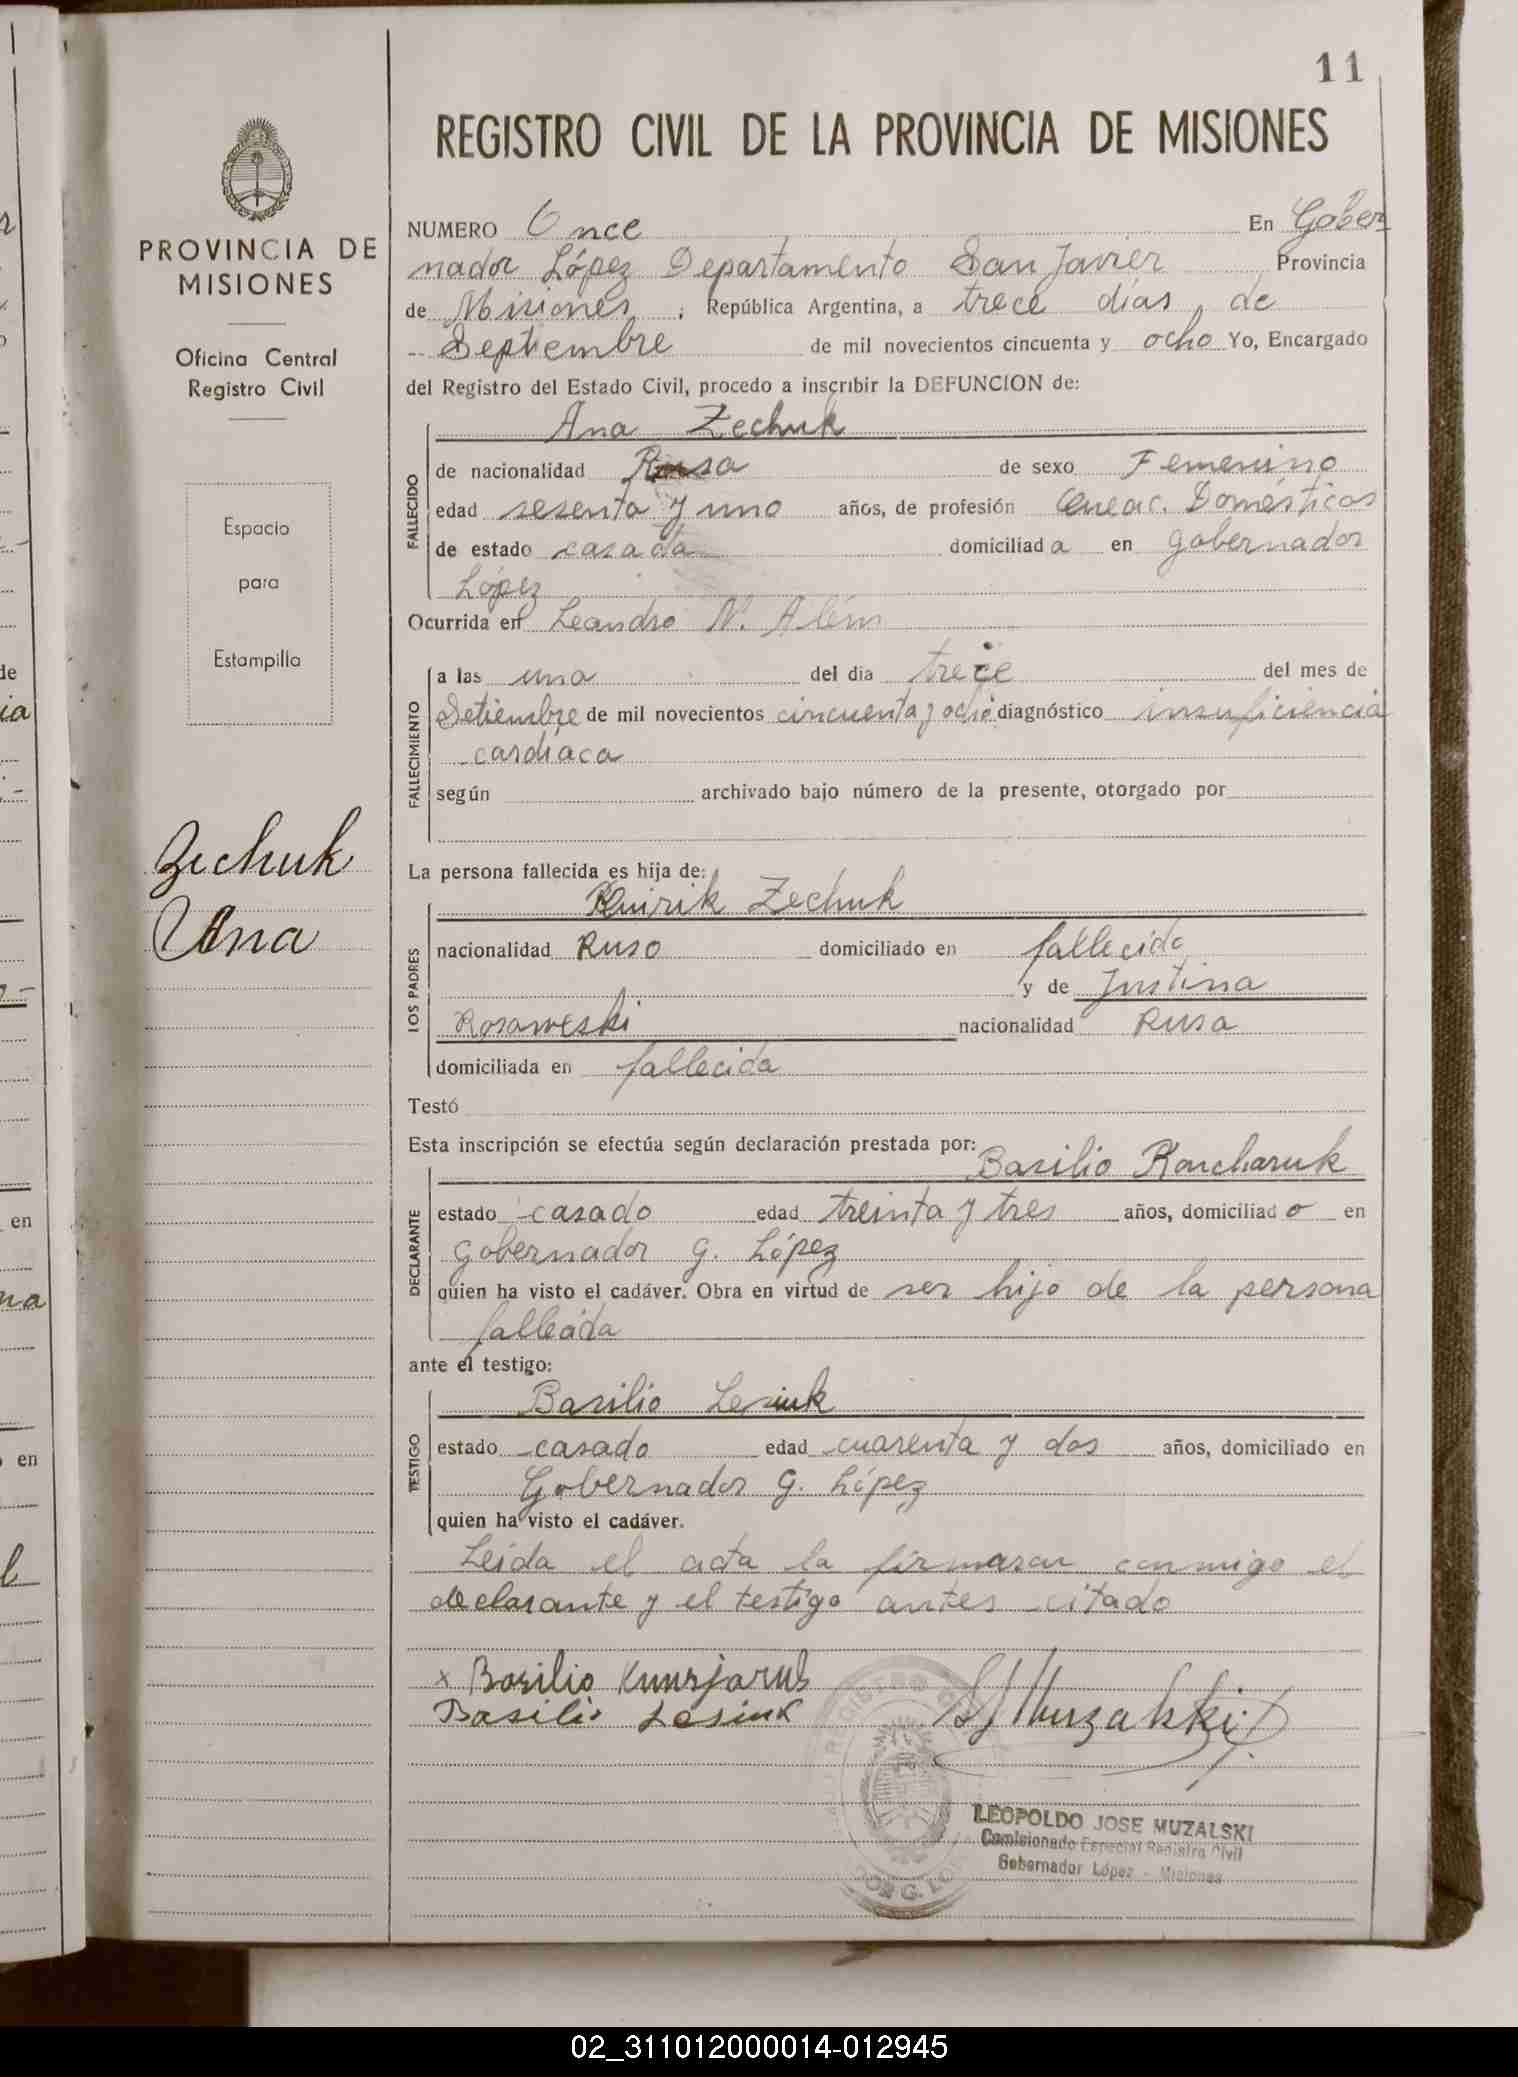 11
REGISTRO CIVIL DE LA PROVINCIA DE MISIONES
PROVINCIA DE
MISIONES
Oficina Central
Registro Civil
Espacio
para
Estampilla
Zechuk
Ana
NUMERO Once En Gober
nador López Departamento San Javier Provincia
de Misiones, República Argentina, a trece días de
Septiembre de mil novecientos cincuenta y ocho Yo, Encargado
del Registro del Estado Civil, procedo a inscribir la DEFUNCION de:
FALLECIDO
Ana Zechuk
de nacionalidad Rusa de sexo Femenino
edad sesenta y uno años, de profesión Domésticos
de estado casada domiciliada en gobernador
López
Ocurrida en Leandro N. Além
FALLECIMIENTO
a las una del dia trece del mes de
Setiembre de mil novecientos cincuenta y ocho diagnóstico insuficiencia
cardíaca
según archivado bajo número de la presente, otorgado por
La persona fallecida es hija de:
LOS PADRES
Zechuk
nacionalidad Ruso domiciliado en fallecido
y de Justina
Rosaweski nacionalidad Rusa
domiciliada en fallecida
Testó
Esta inscripción se efectúa según declaración prestada por:
DECLARANTE
Basilio Koncharuk
estado casado edad treinta y tres años, domiciliado en
gobernador G. López
quien ha visto el cadáver. Obra en virtud de ser hijo de la persona
fallecida
ante el testigo:
TESTIGO
Basilio Lesiuk
estado casado edad cuarenta y dos años, domiciliado en
Gobernador G. López
quien ha visto el cadáver.
Leida el acta la firmaran conmigo el
declarante y el testigo antes citado
x Basilio
Basilio Lesiuk
LEOPOLDO JOSE MUZALSKI
Comisionado Especial Registro Civil
Gobernador López - Misiones
02_311012000014-012945